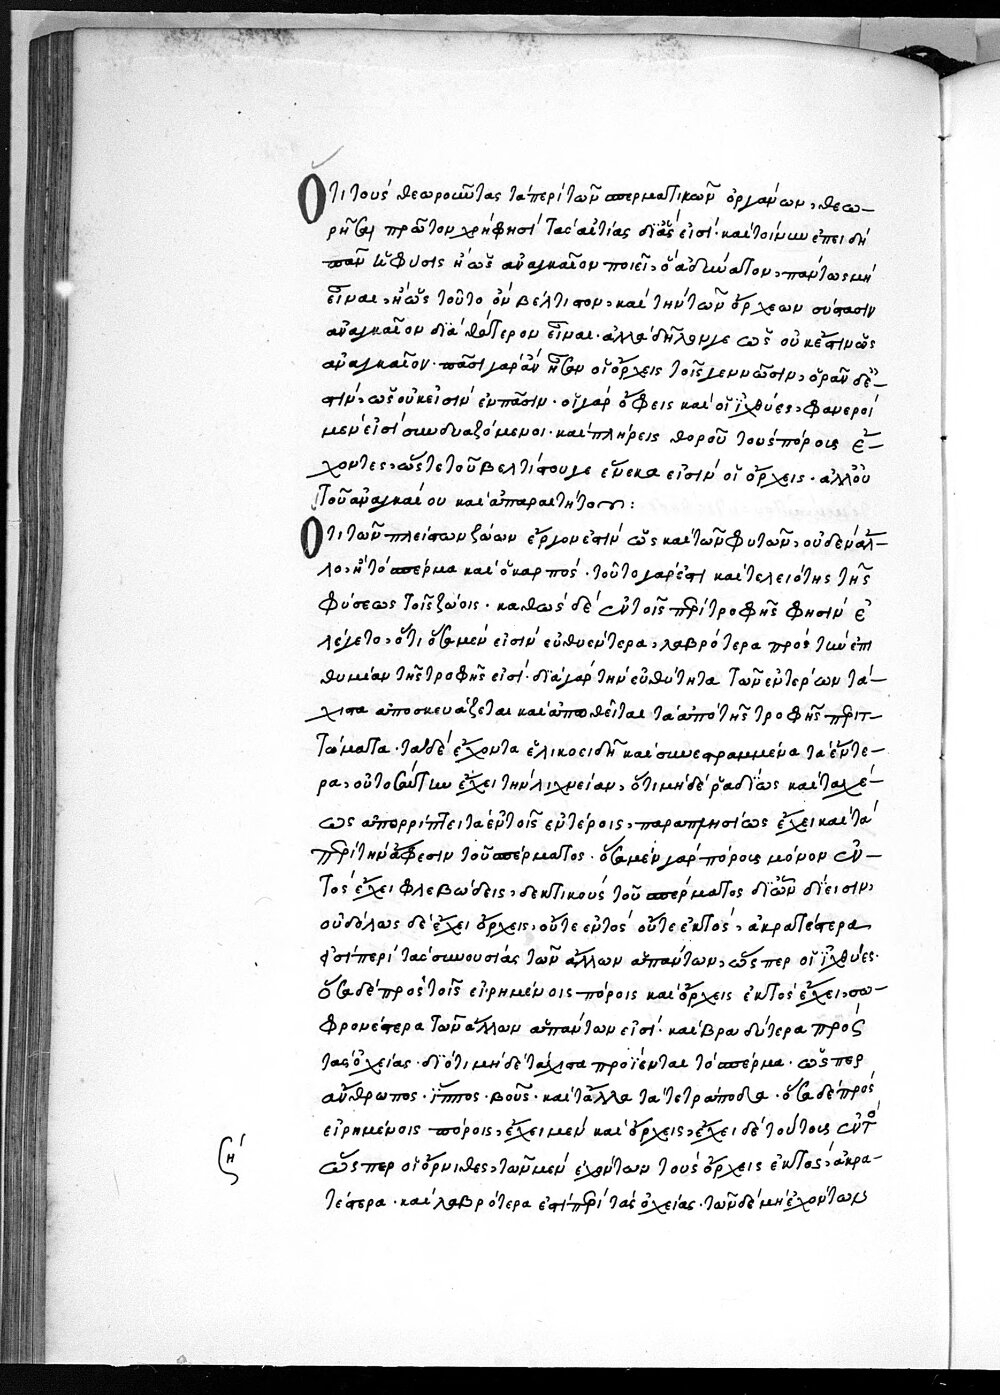 Ὅτι τοὺς θεωροῦντας τὰ περὶ τῶν σπερματικῶν ὀργάνων, θεω-
ρῆσαι πρῶτον χρή φησι τὰς αἰτίας δι' ἅς εἰσι· καὶ τοίνυν ἐπειδὴ
πᾶν ἡ φύσις ἢ ὡς ἀναγκαῖον ποιεῖ, ὃ ἀδύνατον πάντως μὴ
εἶναι, ἢ ὡς τοῦτο ὂν βέλτιστον, καὶ τὴν τῶν ὄρχεων σύστασιν
ἀναγκαῖον διὰ θάτερον εἶναι· ἀλλὰ δῆλόν γε ὡς οὐκ ἔστιν ὡς
ἀναγκαῖον· πᾶσι γὰρ ἂν ἦσαν οἱ ὄρχεις τοῖς γεννῶσιν, ὁρᾶν δέ ἐ-
στιν, ὡς οὐκ εἰσὶν ἐν πᾶσιν· οἱ γὰρ ὄφεις καὶ οἱ ἰχθύες, φανεροὶ
μέν εἰσι συνδυαζόμενοι· καὶ πλήρεις θοροῦ τοὺς πόρους ἔ-
χοντες, ὥστε τοῦ βελτίστου γε ἕνεκα εἰσὶν οἱ ὄρχεις· ἀλλ' οὐ
τοῦ ἀναγκαίου καὶ ἀπαραιτήτου:
Ὅτι τῶν πλείστων ζώων ἔργον ἐστὶν ὡς καὶ τῶν φυτῶν, οὐδὲν ἄλ-
λο, ἢ τὸ σπέρμα καὶ ὁ καρπός· τοῦτο γάρ ἐστι καὶ τελειότης τῆς
φύσεως τοῖς ζώοις· καθὼς δὲ ἐν τοῖς περὶ τροφῆς φησὶν ἐ
λέγετο, ὅτι ὅσα μέν εἰσιν εὐθυέντερα, λαβρότερα πρὸς τὴν ἐπι
θυμίαν τῆς τροφῆς εἰσί· διὰ γὰρ τὴν εὐθύτητα τῶν ἐντέρων τά-
χιστα ἀποσκευάζεται καὶ ἀπωθεῖται τὰ ἀπὸ τῆς τροφῆς περιτ-
τώματα· τὰ δὲ ἔχοντα ἑλικοειδῆ καὶ συνεστραμμένα τὰ ἔντε-
ρα, οὐ τοσαύτην ἔχει τὴν λιχνείαν, ὅτι μηδὲ ῥαδίως καὶ ταχέ-
ως ἀπορρίπτει τὰ ἐν τοῖς ἐντέροις, παραπλησίως ἔχει καὶ τὰ
περὶ τὴν ἄφεσιν τοῦ σπέρματος· ὅσα μὲν γὰρ πόρους μόνον ἐν-
τὸς ἔχει φλεβώδεις, δεκτικοὺς τοῦ σπέρματος δι' ὧν δίεισιν,
οὐδόλως δὲ ἔχει ὄρχεις, οὔτε ἐντὸς οὔτε ἐκτός, ἀκρατέστερα
ἐστὶ περὶ τὰς συνουσίας τῶν ἄλλων ἁπάντων, ὥσπερ οἱ ἰχθύες·
ὅσα δὲ πρὸς τοῖς εἰρημένοις πόροις καὶ ὄρχεις ἐκτὸς ἔχει, σω-
φρονέστερα τῶν ἄλλων ἁπάντων εἰσί· καὶ βραδύτερα πρὸς
τὰς ὀχείας· διότι μηδὲ τάχιστα προΐενται τὸ σπέρμα· ὥσπερ
ἄνθρωπος· ἵππος· βοῦς· καὶ τἄλλα τὰ τετράποδα· ὅσα δὲ πρὸς
εἰρημένοις πόροις, ἔχει μὲν καὶ ὄρχεις, ἔχει δὲ τούτους ἐντὸς
ὥσπερ οἱ ὄρνιθες, τῶν μὲν ἐχόντων τοὺς ὄρχεις ἐκτός, ἀκρα-
τέστερα· καὶ λαβρότερα ἐστὶ περὶ τὰς ὀχείας· τῶν δὲ μὴ ἐχόντων